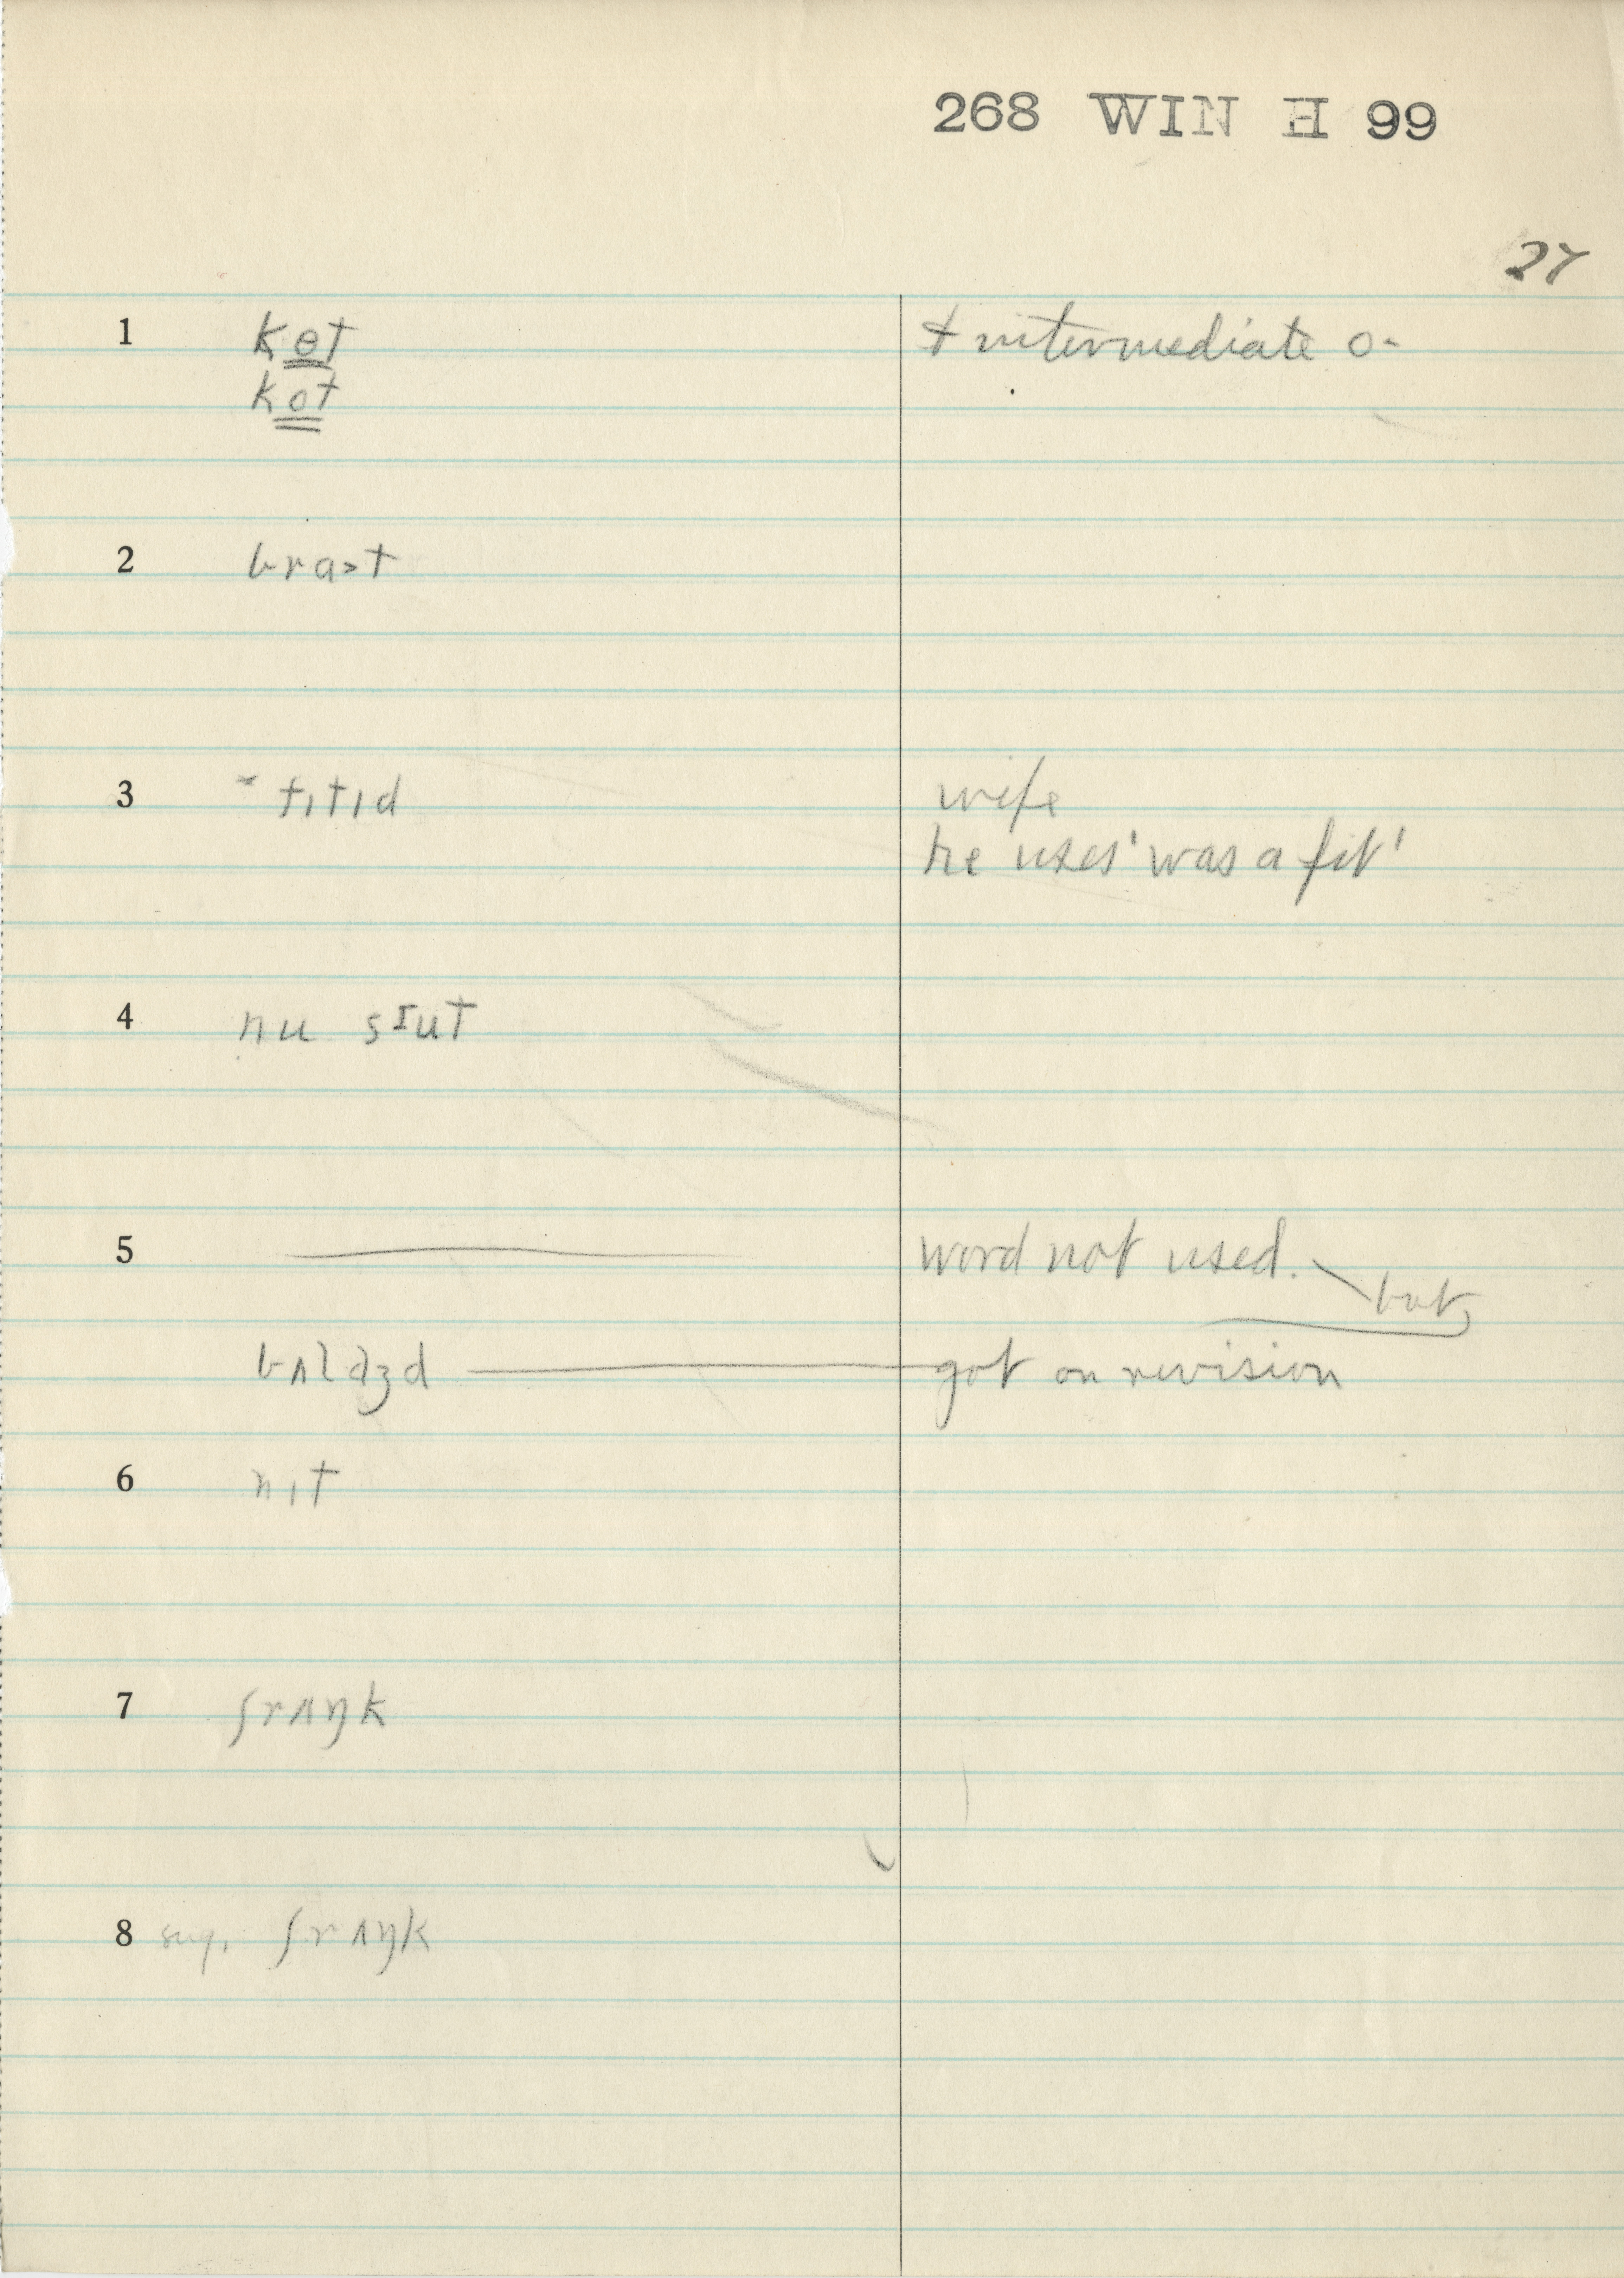 268 WIN H 99
27
1 kɵt + intermediate o-
kot
2 brast
3 ~ fɪtɪd wife
he uses 'was a fit'
4 nu sɪut
5 word not used. but
bʌlʤd got on revision
6 nɪt
7 ʃrʌŋk
8 sug. ʃrʌŋk